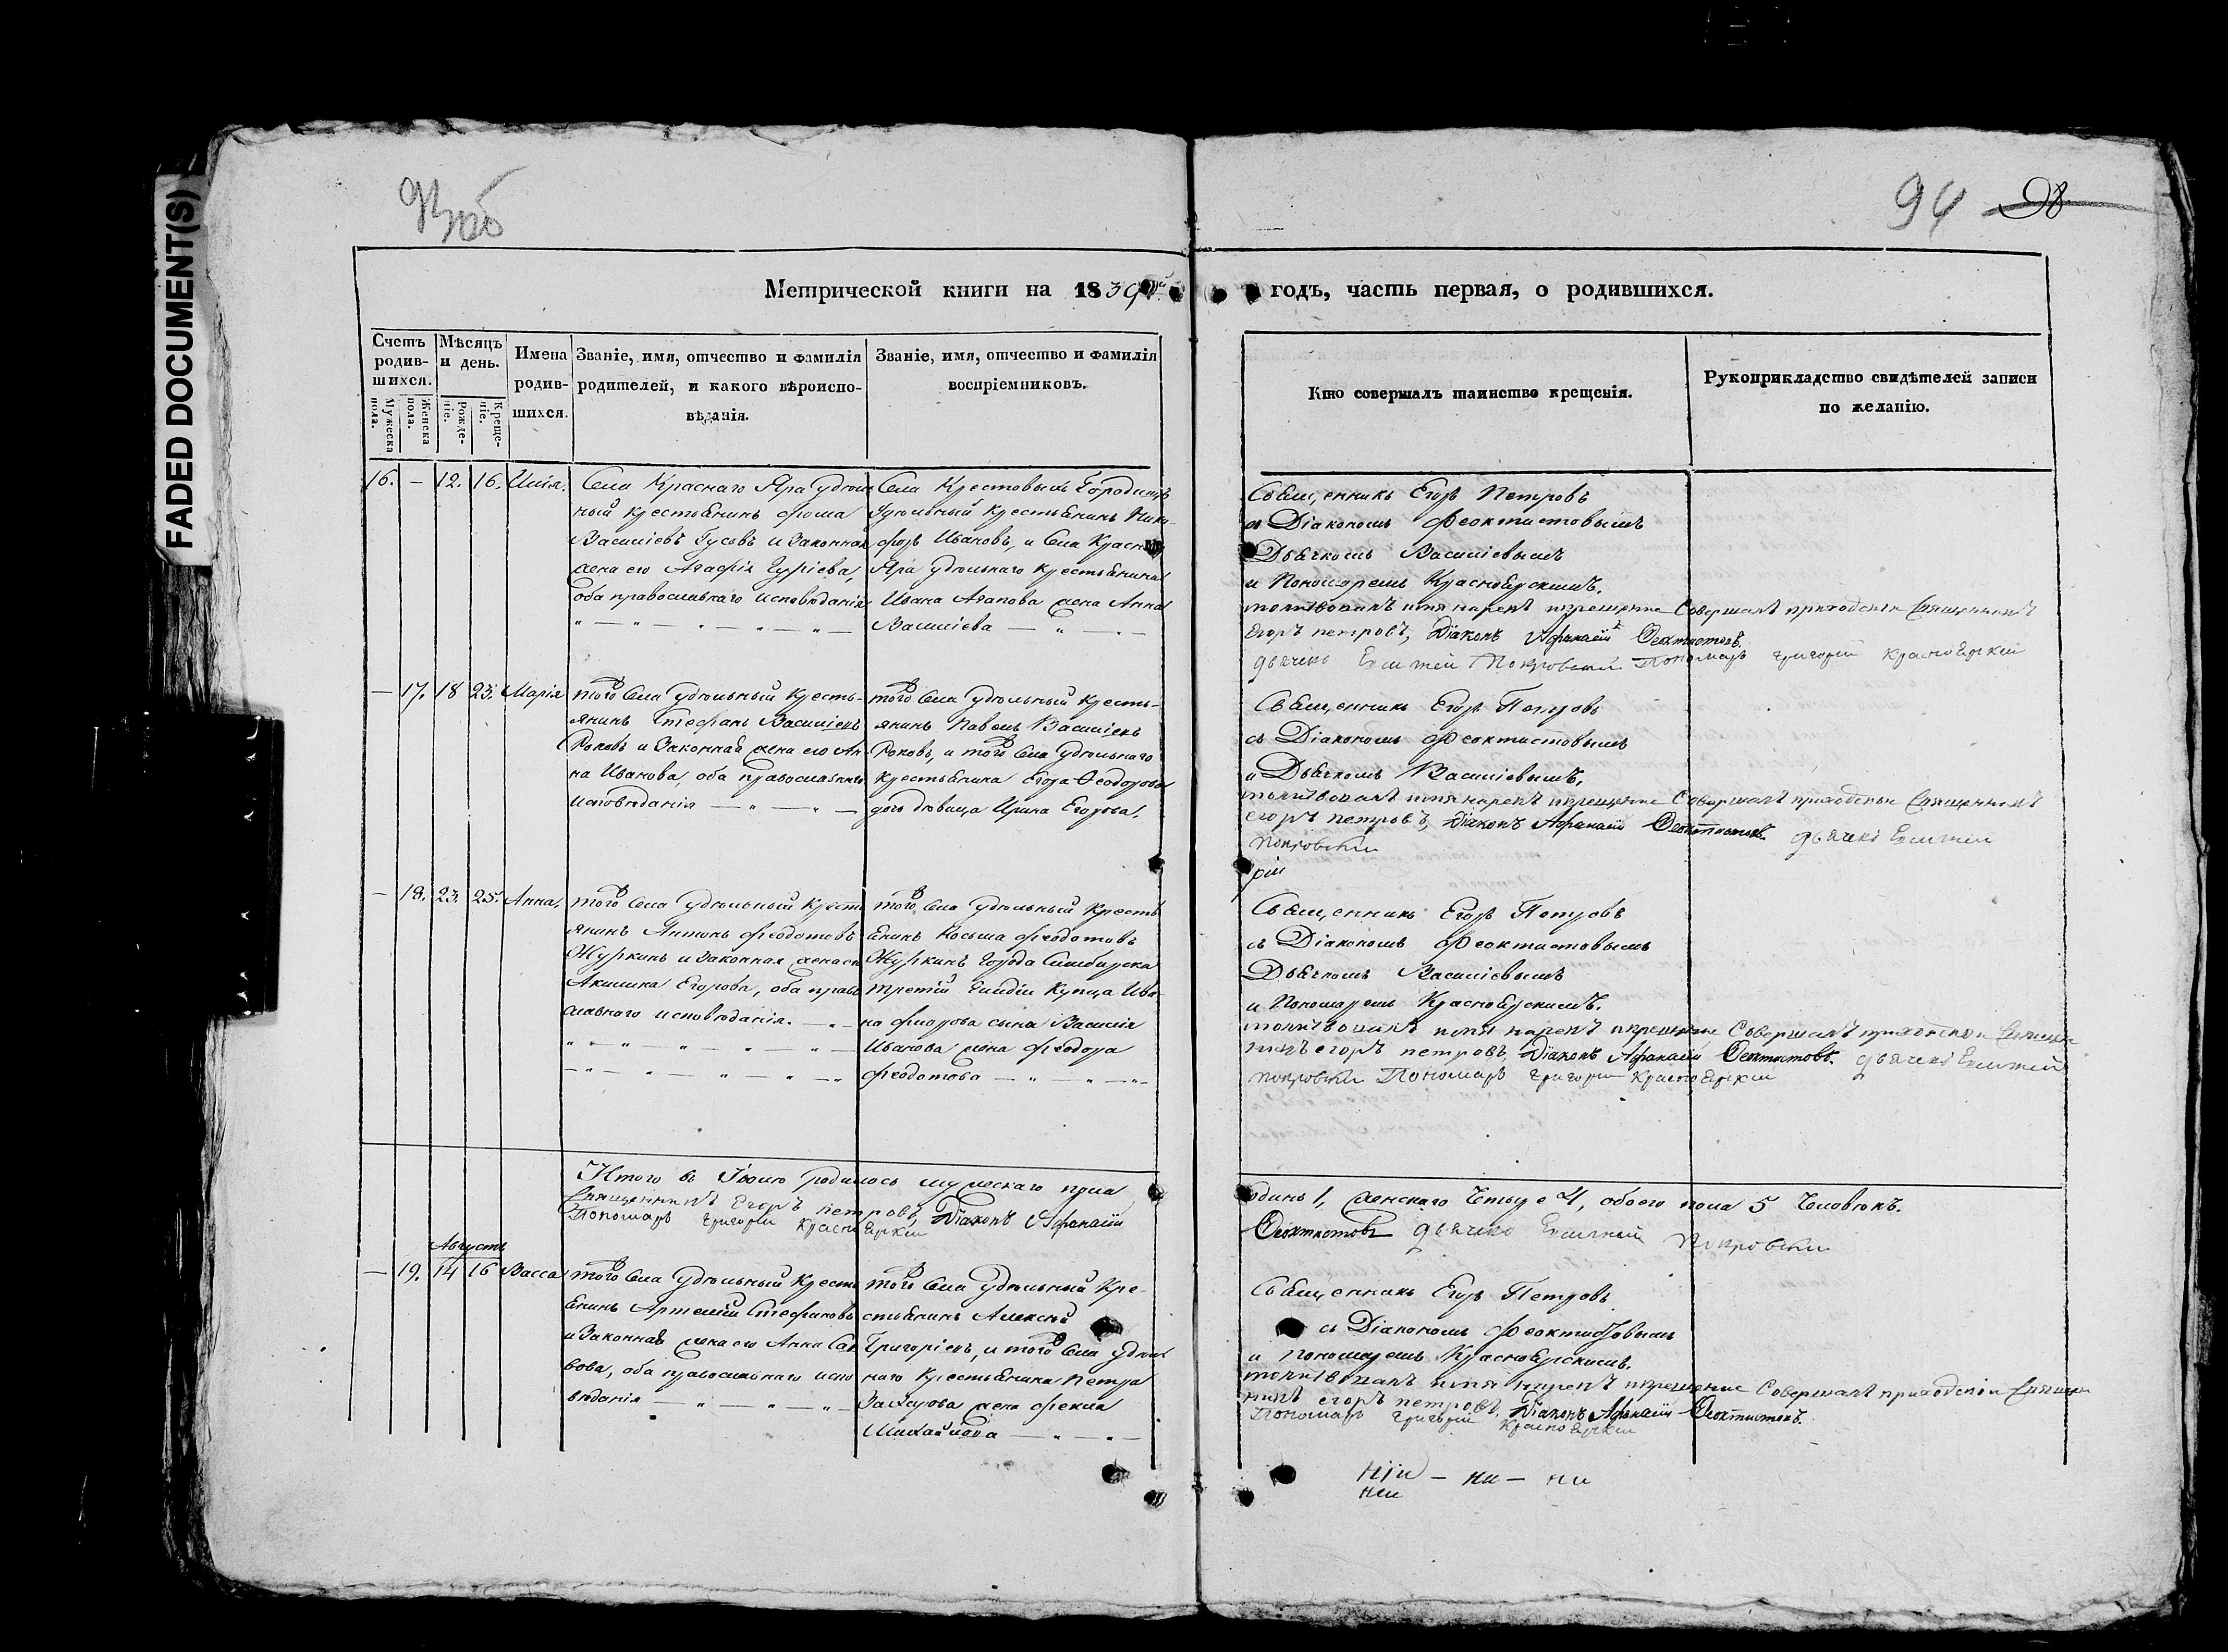 FADED DOCUMENT(S)
93 об
94 98
Метрической книги на 1839й
годъ, часть первая, о родившихся.
Счетъ родив-шихся.
Мужеска пола.
Женска пола.
Мѣсяцъ и день.
Рожде-ніе.
Креще-ніе.
Имена родив-шихся.
Званіе, имя, отчество и фамилія
родителей, и какого вѣроиспо-
вѣданія.
Званіе, имя, отчество и фамилія
воспріемниковъ.
Кто совершалъ таинство крещенія.
Рукоприкладство свидѣтелей записи
по желанію.
16. — 12. 16. Илія.
Села Краснаго Яра удѣль
ный крестьянинъ Фома
Василіевъ Гусевъ и Законная
жена его Агафія Гуріева,
оба православнаго исповѣданія
Села Крестовыхъ Городищъ
Удѣльный крестьянинъ Ники-
форъ Ивановъ, и Села Краснаго
Яра удѣльнаго крестьянина
Ивана Агапова жена Анна
Василіева
Священникъ Егоръ Петровъ
съ Діакономъ Феоктистовымъ
Дьячкомъ Василіевымъ
и Пономаремъ Красноярскимъ.
молитвовалъ имя нарекъ икрещение Совершалъ приходскій Священникъ
Егоръ петровъ, Діаконъ Афанасій Феоктистовъ.
дьячекъ Евсигней Покровскій Пономарь григорій красноярскій
— 17. 18 23. Марія
того Села удѣльный кресть-
янинъ Стефанъ Василіевъ
Роковъ и Законная жена его Ан-
на Иванова, оба православнаго
исповѣданія
того Села удѣльный кресть-
янинъ Павелъ Василіевъ
Роковъ, и того Села удѣльнаго
крестьянина Егора Феодорова
дочь дѣвица Ирина Егорова.
Священникъ Егоръ Петровъ
съ Діакономъ Феоктистовымъ
и Дьячкомъ Василіевымъ,
молитвовалъ имя нарекъ икрещение Совершалъ приходскій Священникъ
егоръ петровъ, Діаконъ Афанасій Феоктистовъ дьячекъ Евсигней
Покровскій
рій
— 18. 23. 25. Анна.
того Села удѣльный Кресть
янинъ Антонъ Феодотовъ
Журкинъ и Законная жена его
Акилина Егорова, оба право
славнаго исповѣданія.
того Села удѣльный Кресть
янинъ Косьма Феодотовъ
Журкинъ Города Симбирска
третій Гильдіи Купца Ива-
на Фролова сына Василія
Иванова жена Феодора
Феодотова
Священникъ Егоръ Петровъ
съ Діакономъ Феоктистовымъ
Дьячкомъ Василіевымъ
и Пономаремъ Красноярскимъ.
молитвовалъ имя нарекъ икрещение Совершалъ приходскій Священ
никъ егоръ петровъ, Діаконъ Афанасій Феоктистовъ. дьячекъ Евсигней
покровскій Пономарь григорій Красноярскій
Итого въ Іюлѣ родилось мужескаго пола
одинъ 1, женскаго Четыре 4, обоего пола 5 Человѣкъ.
Священникъ Егоръ петровъ, Діаконъ Афанасій
Феоктистовъ дьячекъ Евсигней Покровскій
Пономарь григорій Красноярскій
Августъ
— 19. 14 16 Васса
того Села удѣльный Кресть
янинъ Артемій Стефановъ
и Законная жена его Анна Сав
вова, оба православнаго испо
вѣданія
того Села удѣльный Кре-
стьянинъ Алексѣй
Григоріевъ, и того Села удѣль
наго Крестьянина Петра
Захарова жена Фекла
Михайлова
Священникъ Егоръ Петровъ
съ Діакономъ Феоктистовымъ
и пономаремъ Красноярскимъ.
молитвовалъ имя нарекъ икрещение Совершалъ приходскій Священ
никъ егоръ петровъ, Діаконъ Афанасій Феоктистовъ.
Пономарь григорій Красноярскій
ній — ни — ни